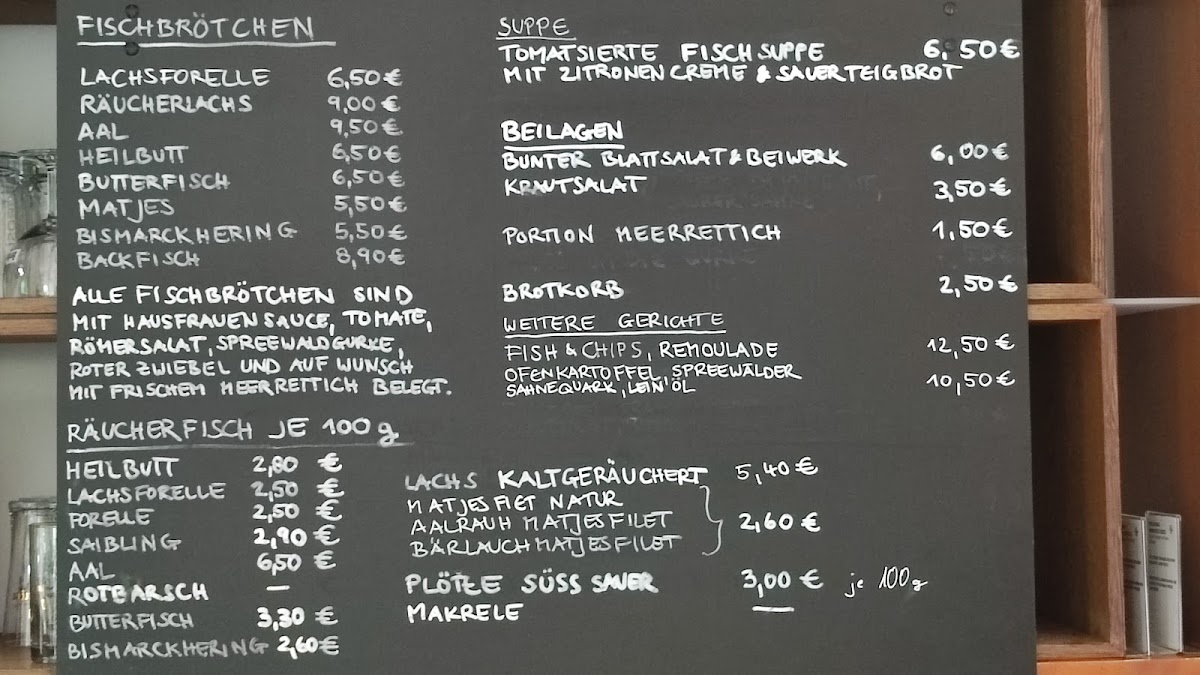 FISCHBRÖTCHEN
LACHSFORELLE 6,50 €
RÄUCHERLACHS 9,00 €
AAL 9,50 €
HEILBUTT 6,50 €
BUTTERFISCH 6,50 €
MATJES 5,50 €
BISMARCKHERING 5,50 €
BACKFISCH 8,90 €
ALLE FISCHBRÖTCHEN SIND
MIT HAUSFRAUENSAUCE, TOMATE,
RÖMERSALAT, SPREEWALDGURKE,
ROTER ZWIEBEL UND AUF WUNSCH
MIT FRISCHEM MEERRETTICH BELEGT.
RÄUCHERFISCH JE 100 g
HEILBUTT 2,80 €
LACHSFORELLE 2,50 €
FORELLE 2,50 €
SAIBLING 2,90 €
AAL 6,50 €
ROTBARSCH —
BUTTERFISCH 3,30 €
BISMARCKHERING 2,60 €
SUPPE
TOMATSIERTE FISCHSUPPE 6,50 €
MIT ZITRONENCREME & SAUERTEIGBROT
BEILAGEN
BUNTER BLATTSALAT & BEIWERK 6,00 €
KRAUTSALAT 3,50 €
PORTION MEERRETTICH 1,50 €
BROTKORB 2,50 €
WEITERE GERICHTE
FISH & CHIPS, REMOULADE 12,50 €
OFENKARTOFFEL, SPREEWÄLDER
SAHNEQUARK, LEIN'ÖL 10,50 €
LACHS KALTGERÄUCHERT 5,40 €
MATJESFIET NATUR
AALRAUH MATJESFILET 2,60 €
BÄRLAUCHMATJESFILET
PLÖTZE SÜSS SAUER 3,00 € je 100g
MAKRELE —